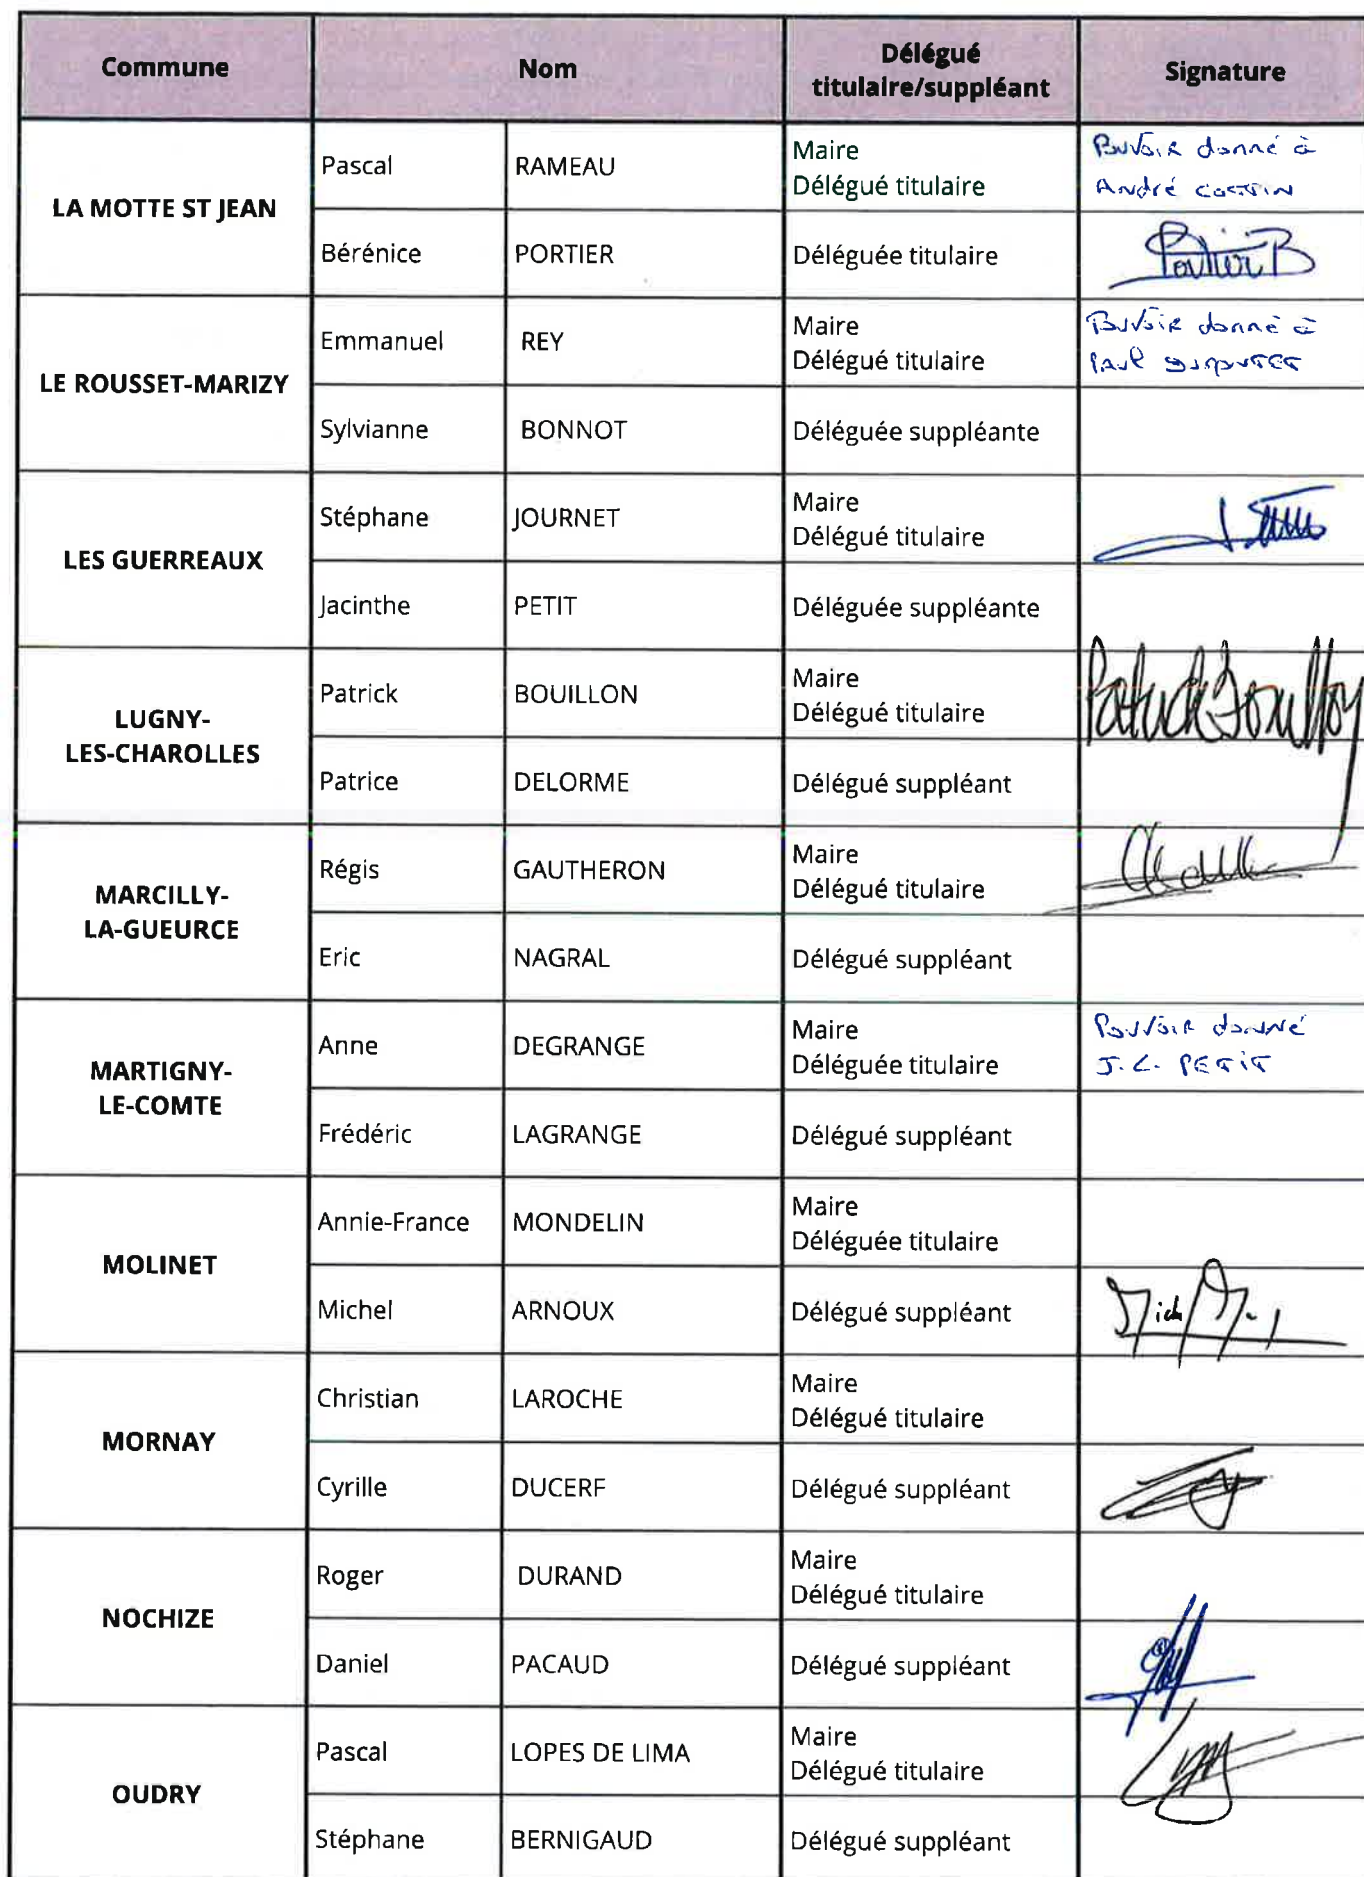 Commune Nom Délégué titulaire/suppléant Signature
LA MOTTE ST JEAN
Pascal RAMEAU Maire Délégué titulaire Pouvoir donné à
André
Bérénice PORTIER Déléguée titulaire Portier B
LE ROUSSET-MARIZY
Emmanuel REY Maire Délégué titulaire Pouvoir donné à
Paul
Sylvianne BONNOT Déléguée suppléante
LES GUERREAUX
Stéphane JOURNET Maire Délégué titulaire
Jacinthe PETIT Déléguée suppléante
LUGNY-
LES-CHAROLLES
Patrick BOUILLON Maire Délégué titulaire
Patrice DELORME Délégué suppléant
MARCILLY-
LA-GUEURCE
Régis GAUTHERON Maire Délégué titulaire
Eric NAGRAL Délégué suppléant
MARTIGNY-
LE-COMTE
Anne DEGRANGE Maire Déléguée titulaire Pouvoir donné
J.C. PETIT
Frédéric LAGRANGE Délégué suppléant
MOLINET
Annie-France MONDELIN Maire Déléguée titulaire
Michel ARNOUX Délégué suppléant
MORNAY
Christian LAROCHE Maire Délégué titulaire
Cyrille DUCERF Délégué suppléant
NOCHIZE
Roger DURAND Maire Délégué titulaire
Daniel PACAUD Délégué suppléant
OUDRY
Pascal LOPES DE LIMA Maire Délégué titulaire
Stéphane BERNIGAUD Délégué suppléant